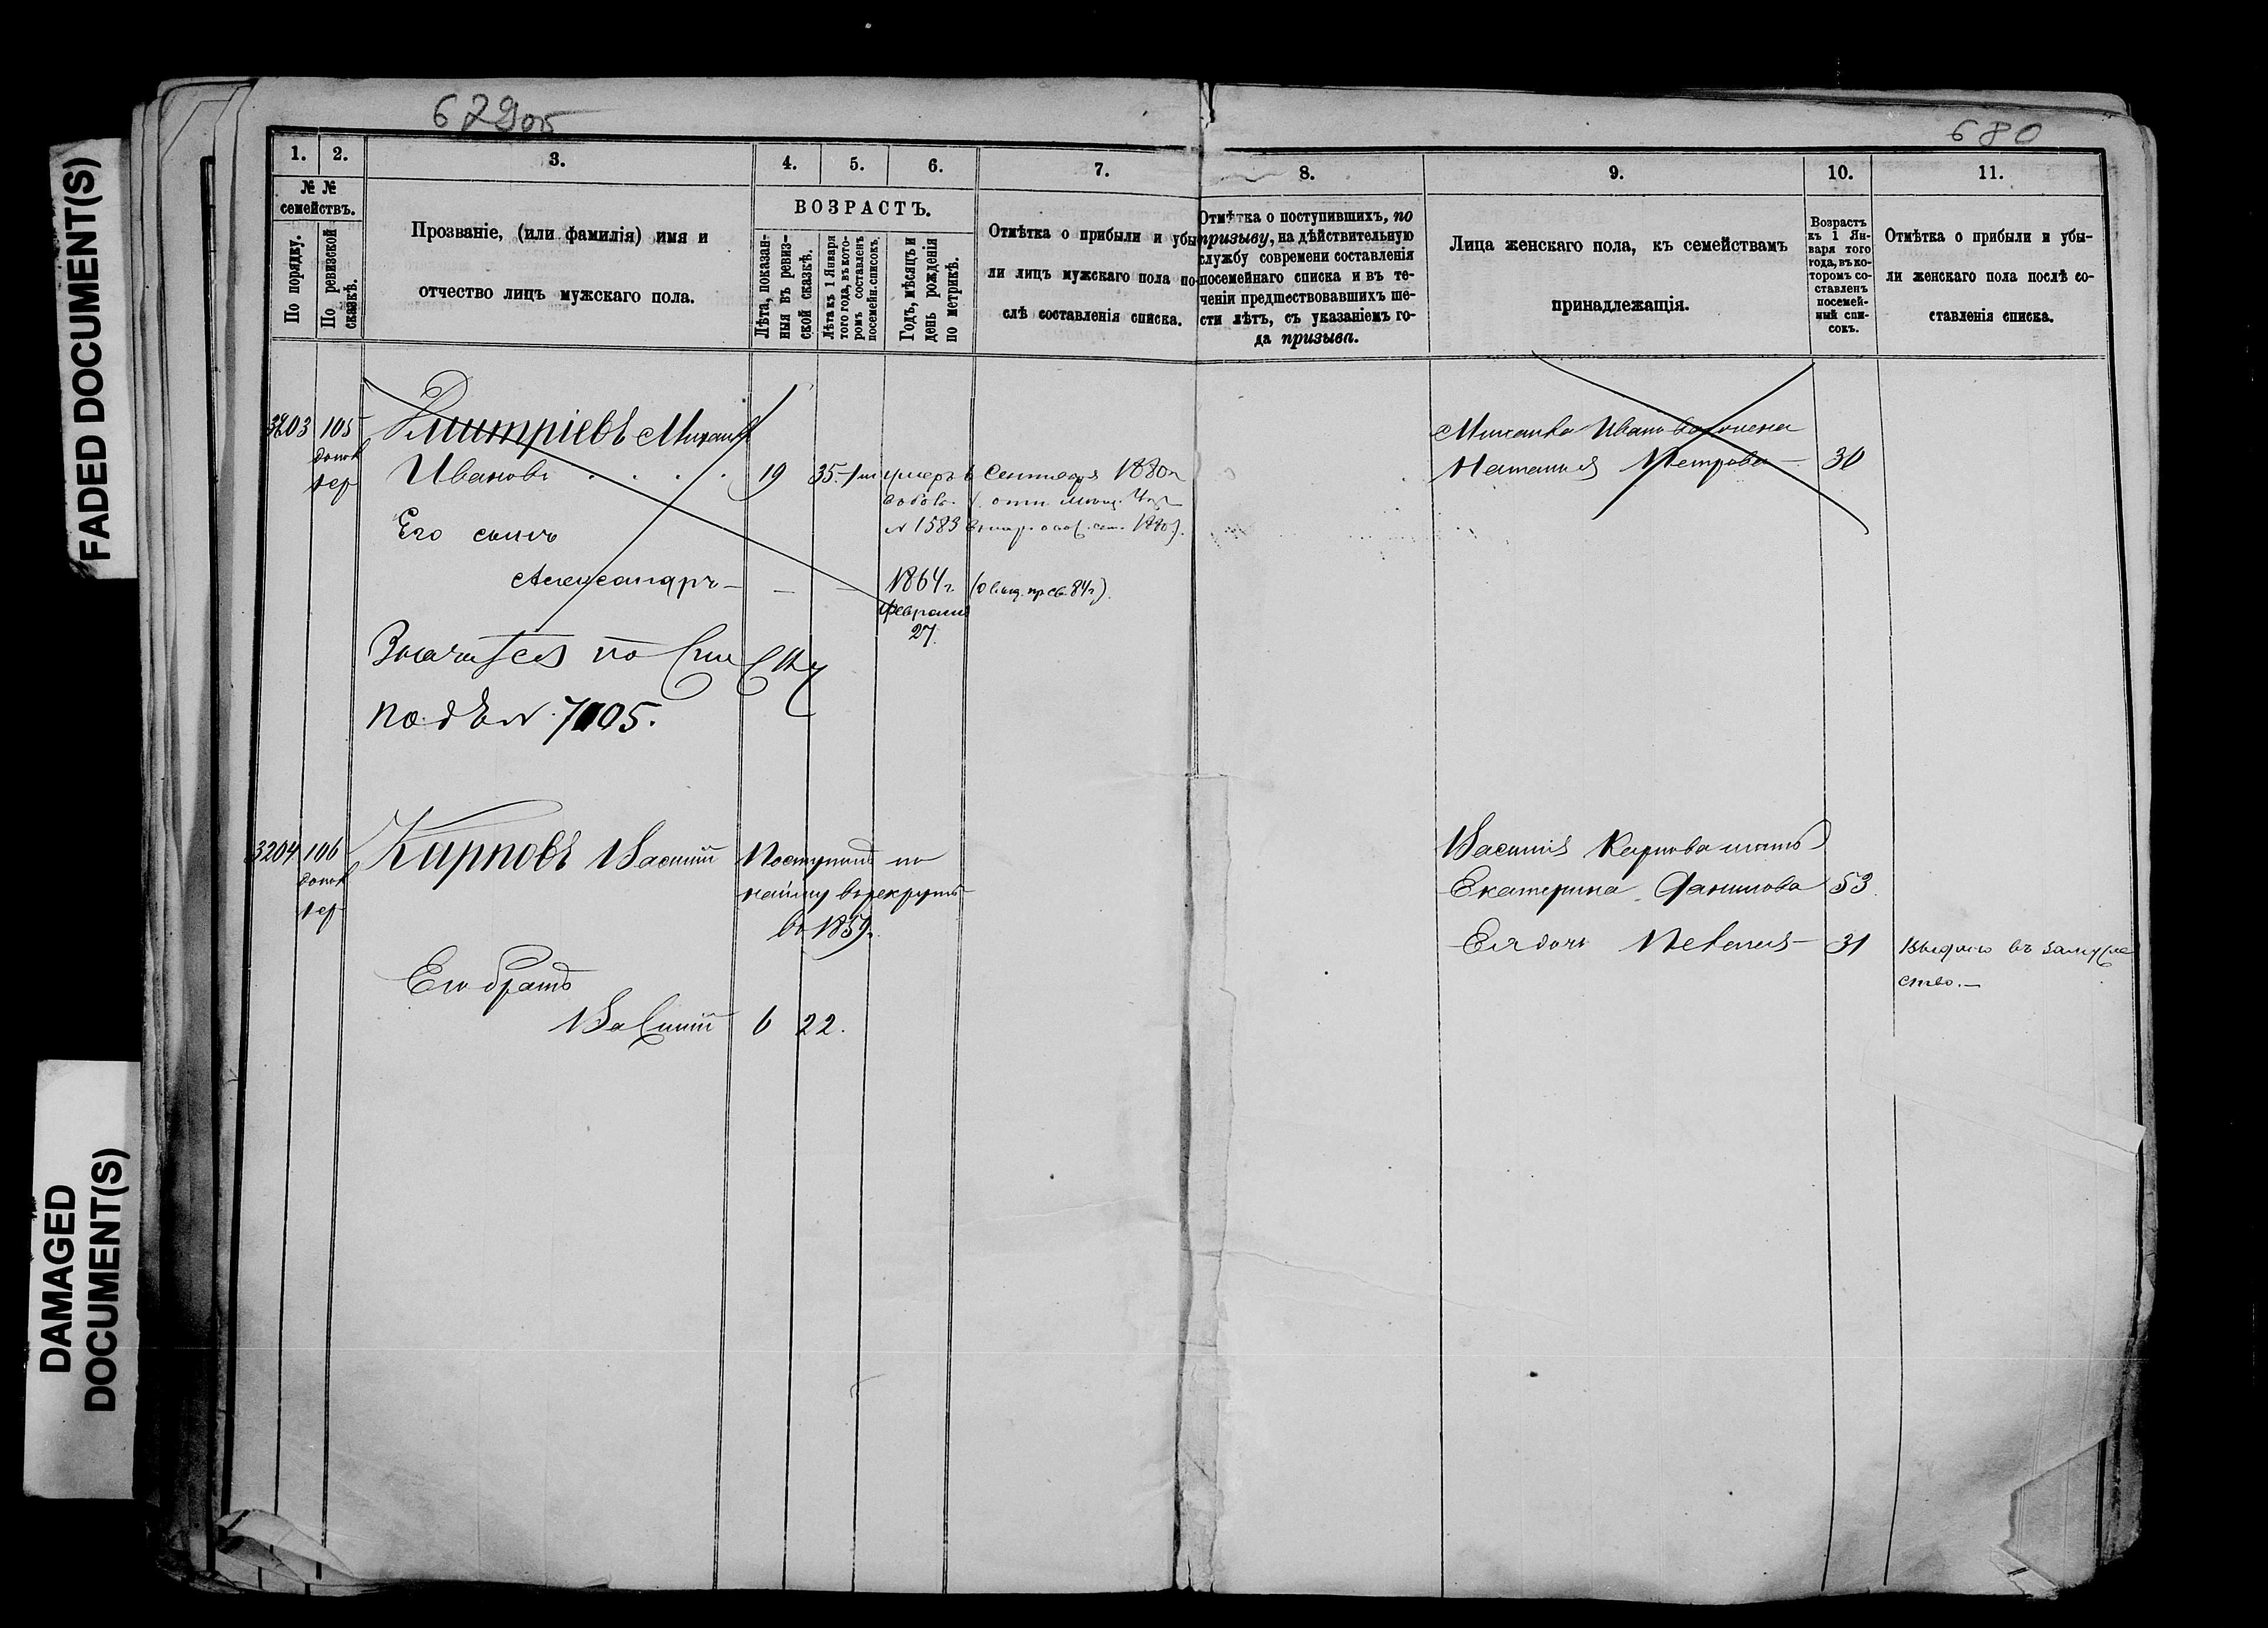 FADED DOCUMENT(S)
DAMAGED
DOCUMENT(S)
679об
680
1. 2. 3. 4. 5. 6. 7. 8. 9. 10. 11.
№ №
семействъ.
По порядку.
По ревизской
сказкѣ.
Прозваніе, (или фамилія) имя и
отчество лицъ мужскаго пола.
ВОЗРАСТЪ.
Лѣта, показан-
ныя въ ревиз-
ской сказкѣ.
Лѣта къ 1 Января
того года, въ кото-
ромъ составленъ
посемейн. списокъ.
Годъ, мѣсяцъ и
день рожденія
по метрикѣ.
Отмѣтка о прибыли и убы-
ли лицъ мужскаго пола по-
слѣ составленія списка.
Отмѣтка о поступившихъ, по
призыву, на дѣйствительную
службу современи составленія
посемейнаго списка и въ те-
ченіи предшествовавшихъ ше-
сти лѣтъ, съ указаніемъ го-
да призыва.
Лица женскаго пола, къ семействамъ
принадлежащія.
Возрастъ
къ 1 Ян-
варя того
года, въ ко-
торомъ со-
ставленъ
посемей-
ный спи-
сокъ.
Отмѣтка о прибыли и убы-
ли женскаго пола послѣ со-
ставленія списка.
3203 105 Дмитріевъ Михаилъ
Ивановъ 19 35 умеръ 6 Сентября 1880г
№ 1583
Его сынъ
Александръ — — — 1864г.
Февраля
27.
Значится по
подъ № 7105.
Михаила Иванова жена
Наталья Петрова — 30
3204 106 Карповъ Василий Поступилъ по
найму въ рекруты
въ 1859г.
Его братъ
Василий 6 22.
Василия Карпова мать
Екатерина Данилова 53
Ея дочь Пелагея — 31 Выдана въ замуже
ство. —